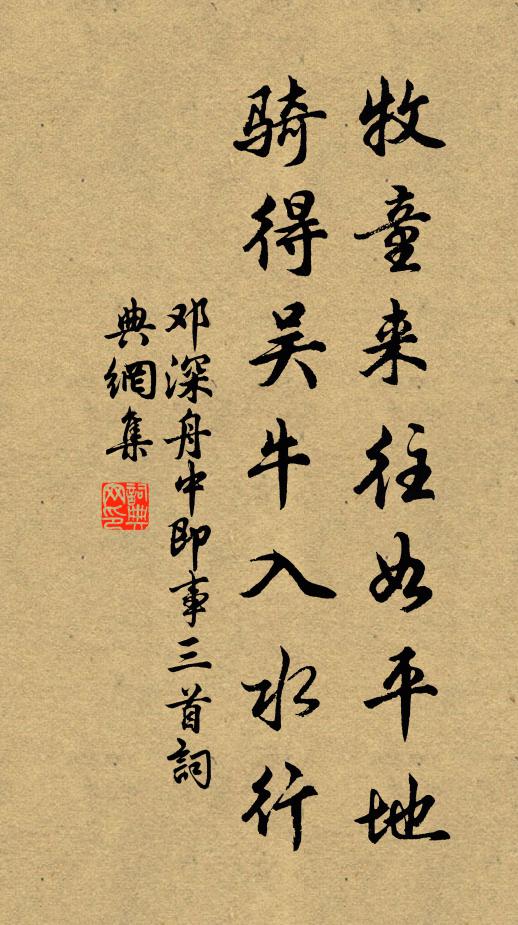 牧童来往如平地
骑得吴牛入水行
邓深舟中即事三首詞
典網集
詞典
网印